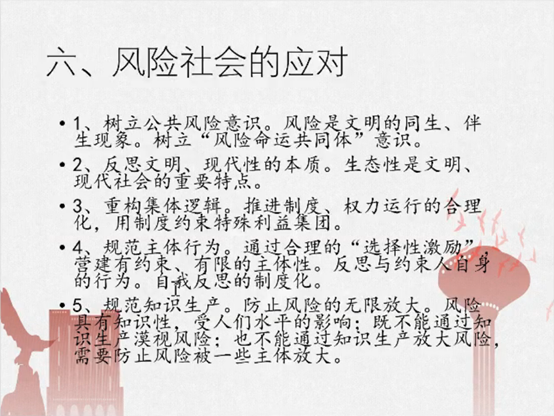 六、风险社会的应对
• 1、树立公共风险意识。风险是文明的同生、伴
生现象。树立“风险命运共同体”意识。
• 2、反思文明、现代性的本质。生态性是文明、
现代社会的重要特点。
• 3、重构集体逻辑。推进制度、权力运行的合理
化，用制度约束特殊利益集团。
• 4、规范主体行为。通过合理的“选择性激励”，
营建有约束、有限的主体性。反思与约束人自身
的行为。自我反思的制度化。
• 5、规范知识生产。防止风险的无限放大。风险
具有知识性，受人们水平的影响；既不能通过知
识生产漠视风险；也不能通过知识生产放大风险，
需要防止风险被一些主体放大。